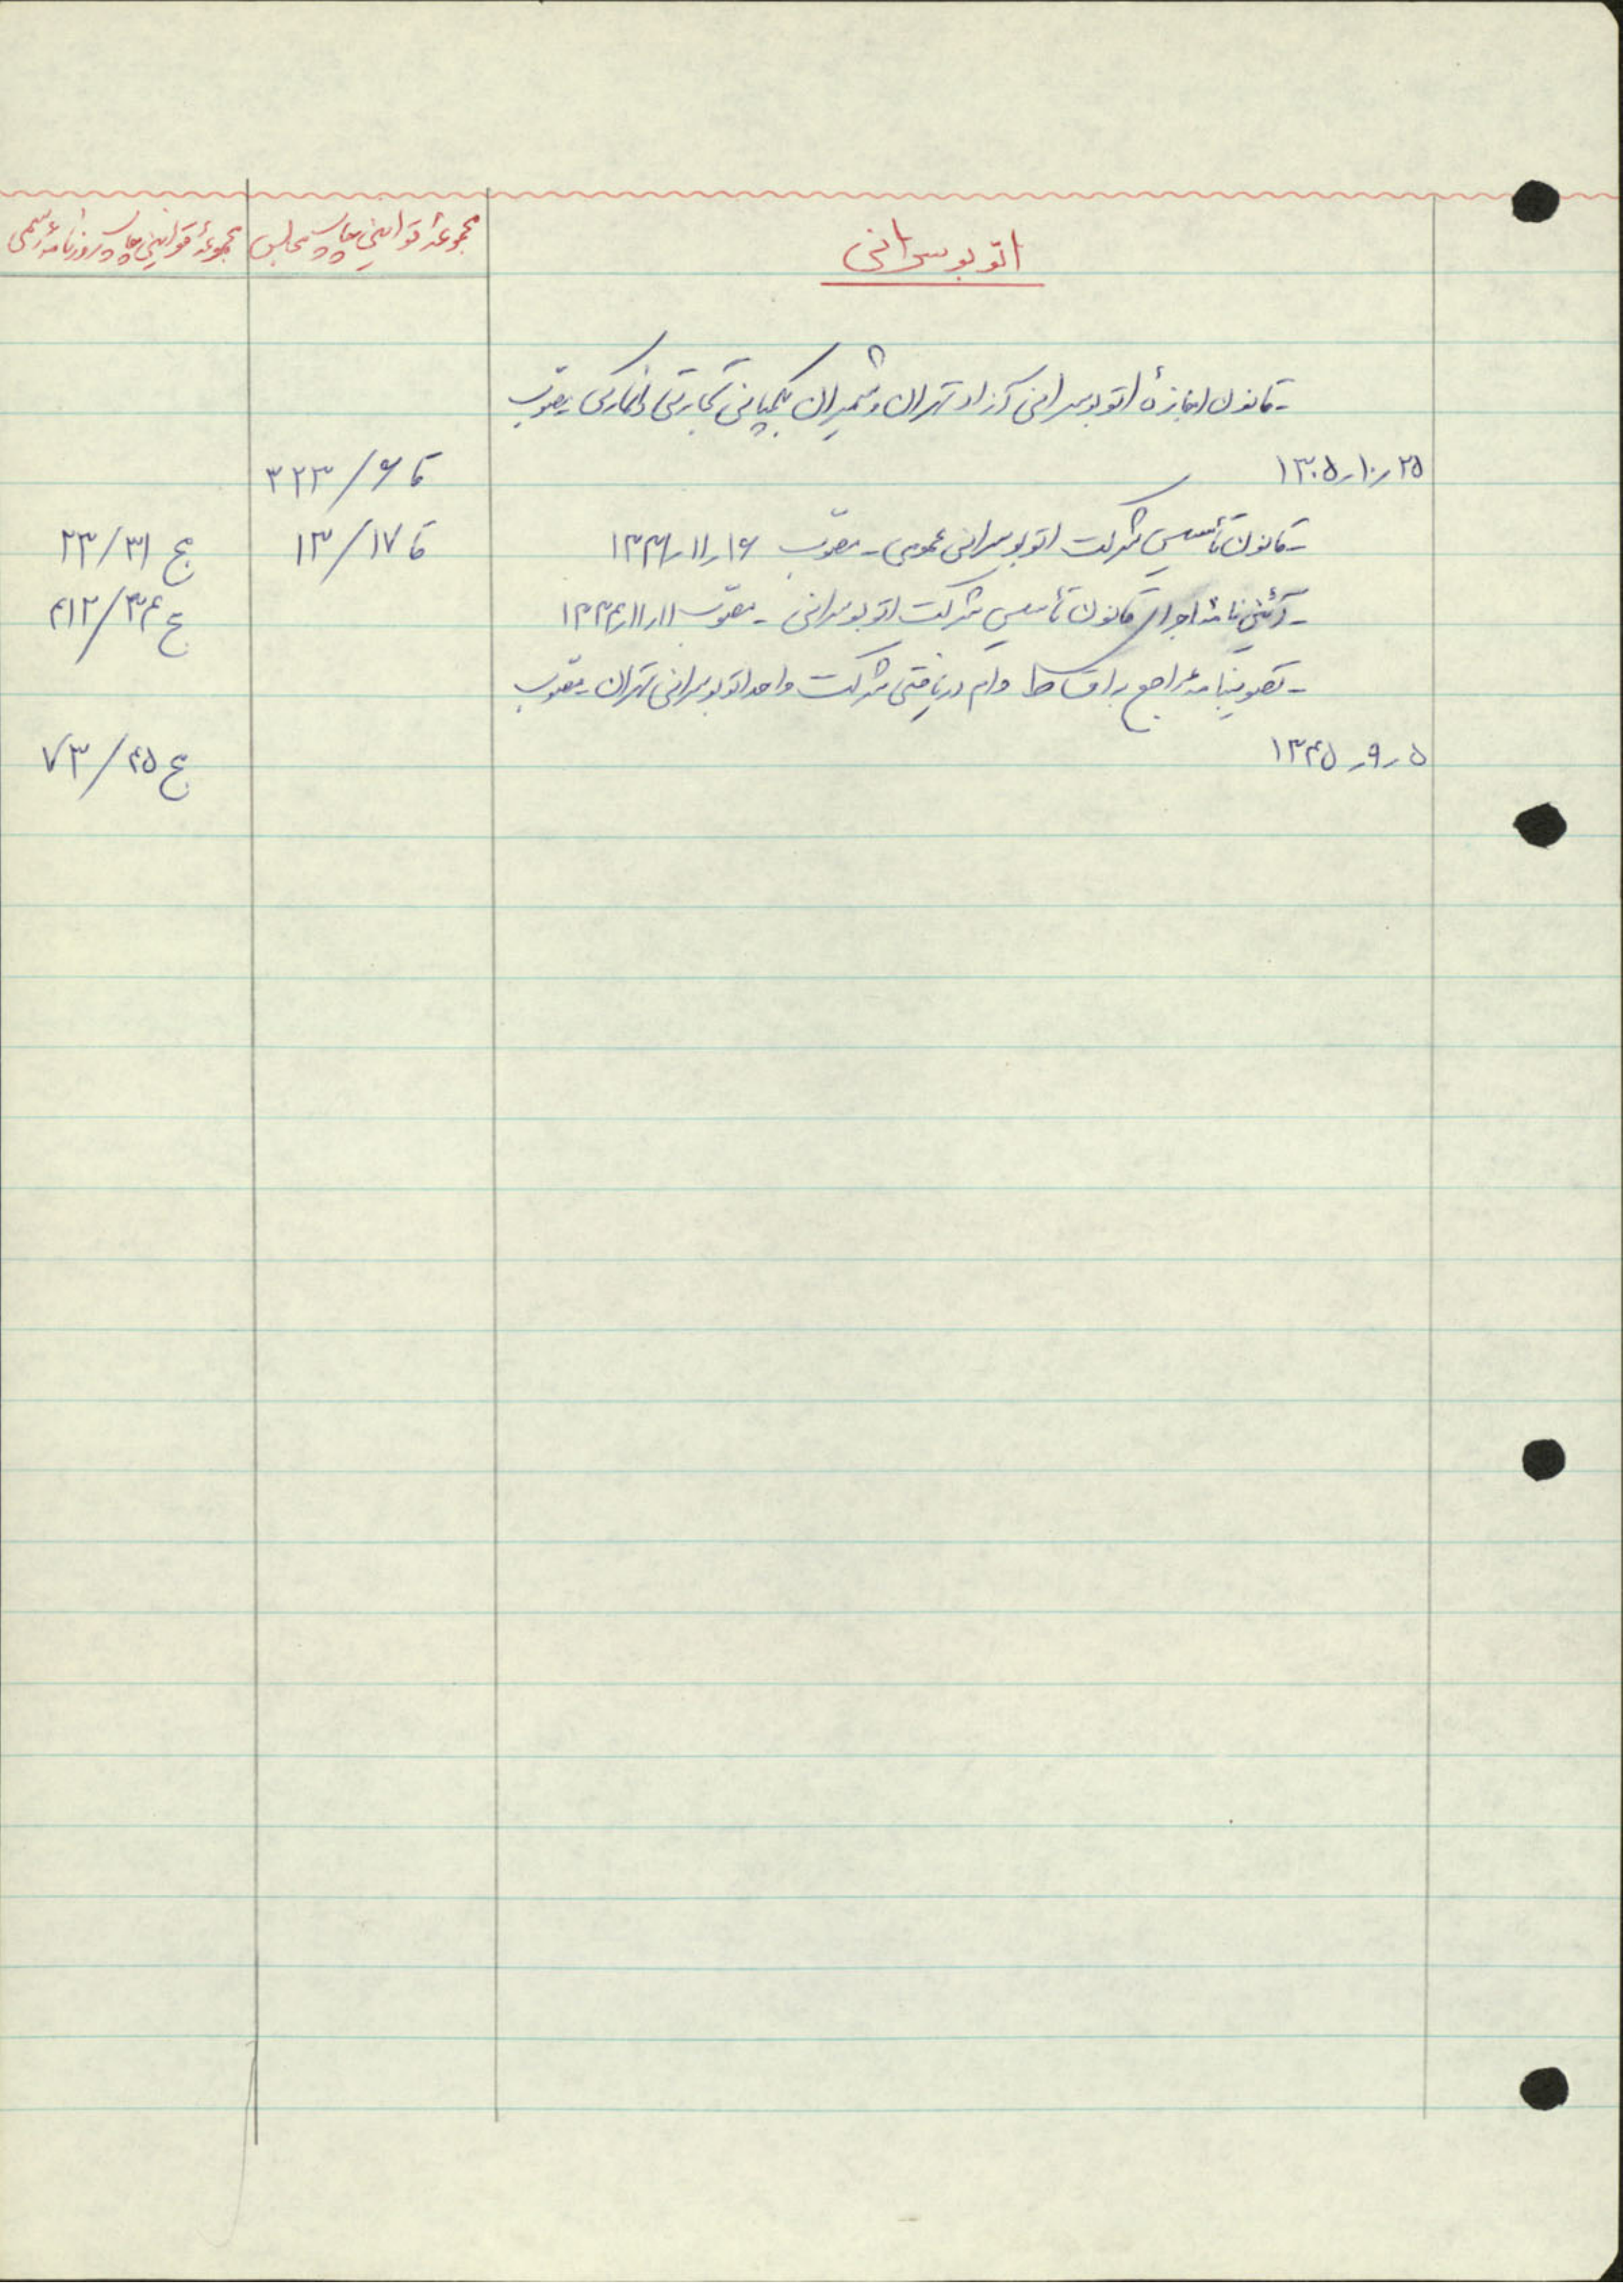 اتوبوسرانی
مجموعهٔ قوانین چاپ مجلس
مجموعهٔ قوانین چاپ روزنامهٔ رسمی
ـ قانون اجازهٔ اتوبوسرانی آزاد تهران و شمیران بکمپانی تجارتی مصوب
۲۵ر۱۰ر۱۳۰۵ قا ۶/۳۲۳
ـ قانون تأسیس شرکت اتوبوسرانی عمومی ـ مصوّب ۱۶ر۱۱ر۱۳۳۱ قا ۱۷/۱۳ مج ۳۱/۲۳
ـ آئین نامهٔ اجرای قانون تأسیس شرکت اتوبوسرانی ـ مصوّب ۱۱ر۱۱ر۱۳۳۴ مج ۳۴/۴۱۲
ـ تصویبنامهٔ راجع به اقساط وام دریافتی شرکت واحد اتوبوسرانی تهران ـ مصوّب
۵ر۹ر۱۳۴۵ مج ۴۵/۷۳